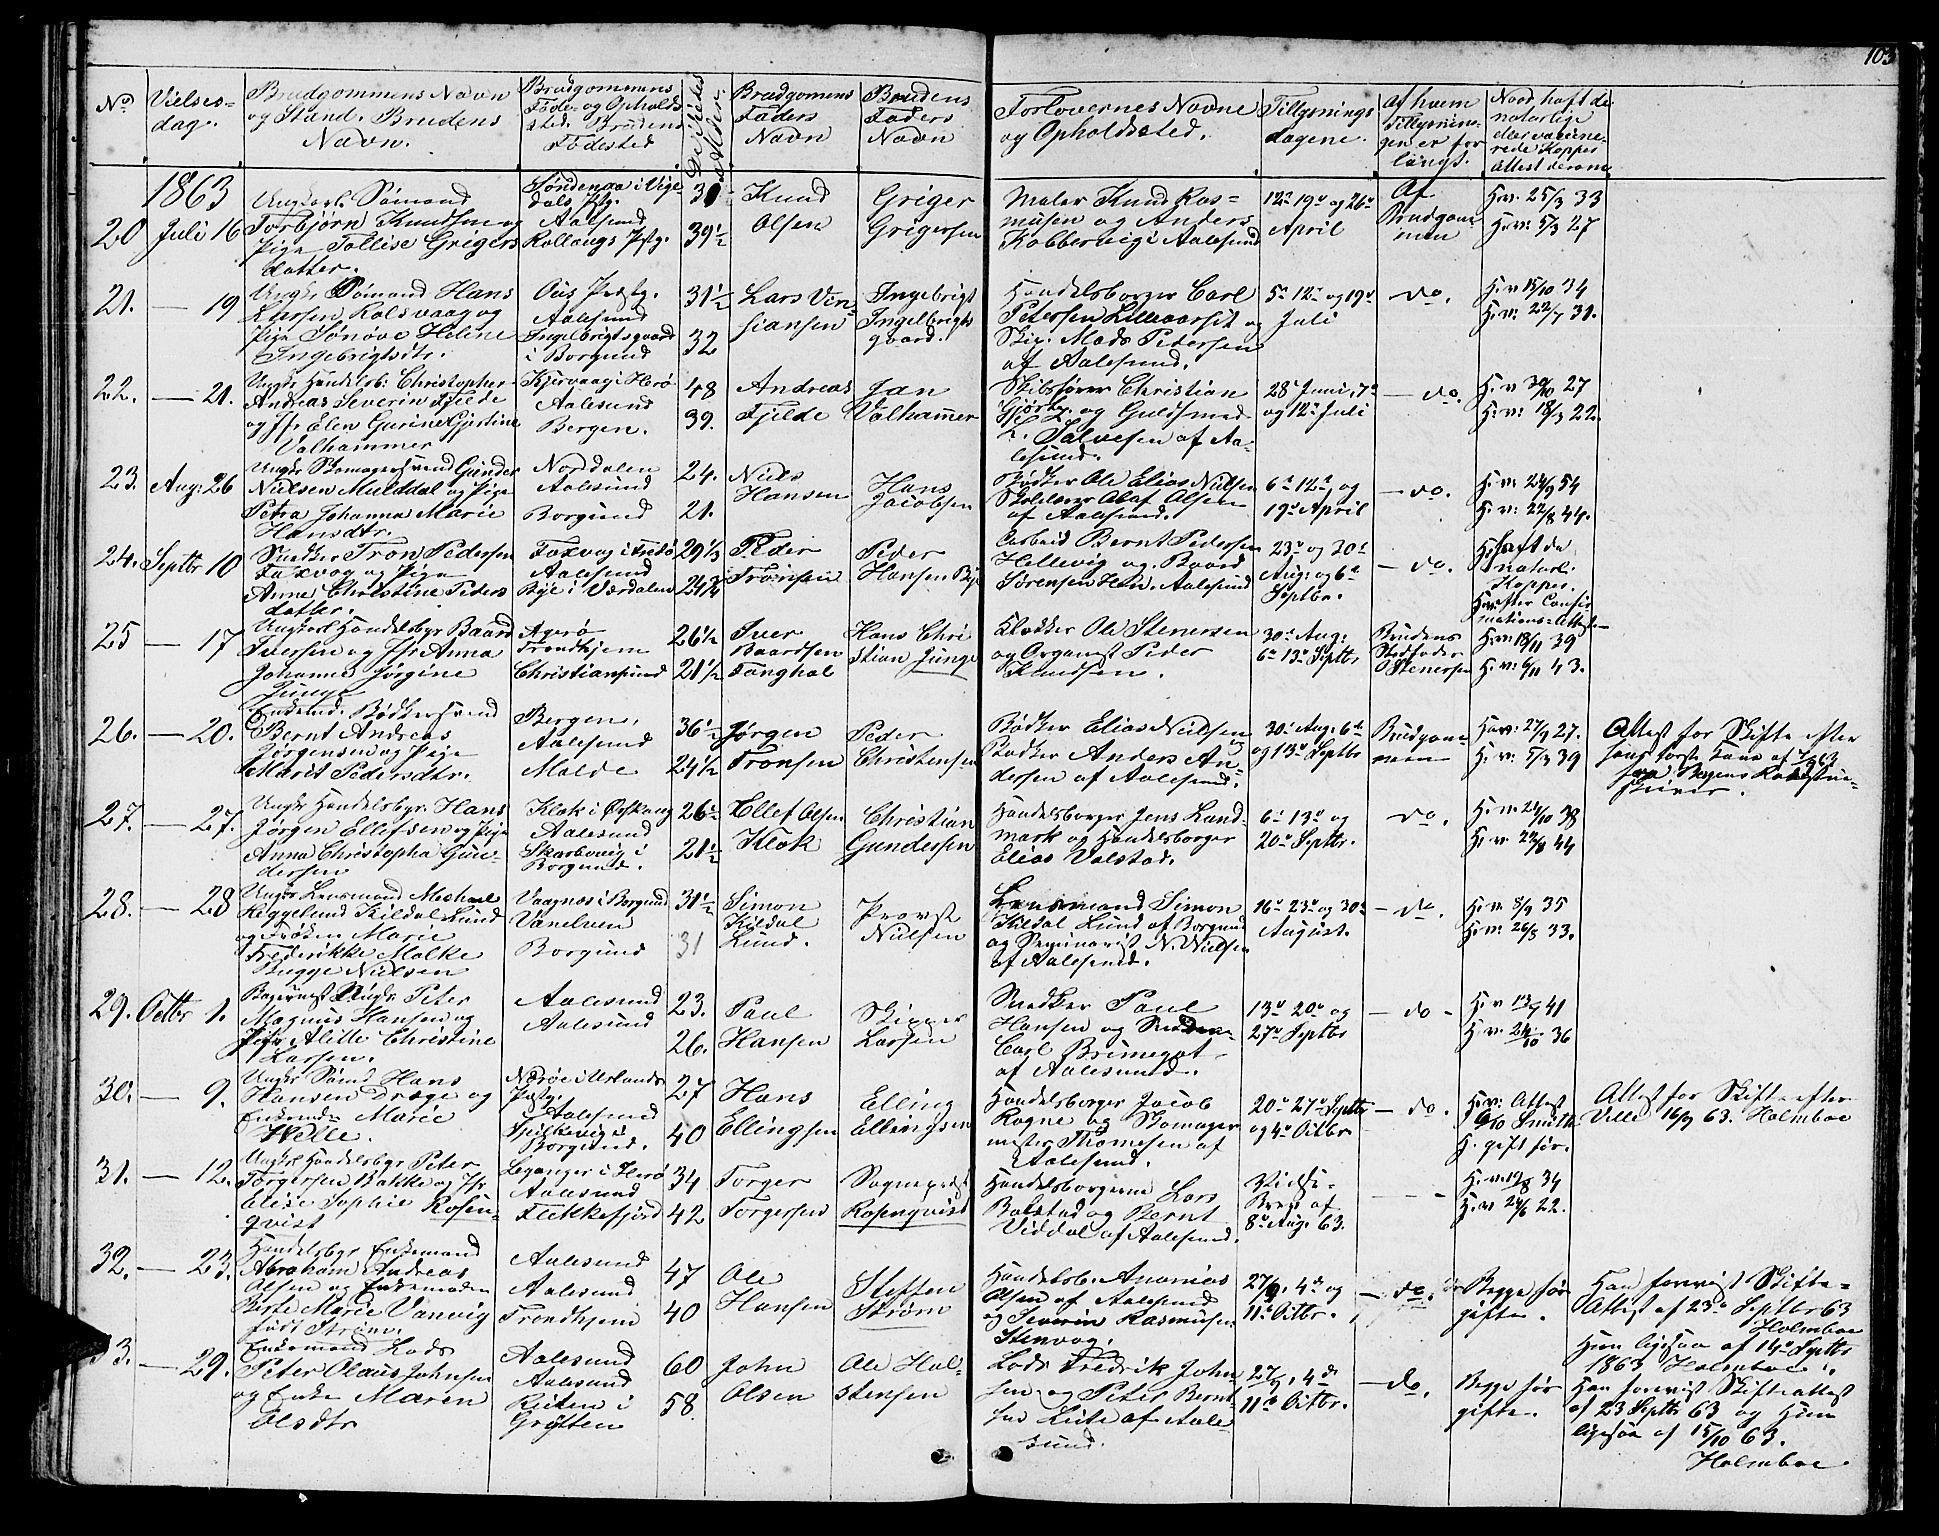 103
No Vielses-dag. Brudgommens Navn og Stand. Brudens Navn. Brudgommens Føde- og Opholdssted. Brudens Fødested Begges Alder. Brudgomens Faders Navn Brudens Faders Navn Forlovernes Navne og Opholdssted. Tillysnings dagene. Af hvem Tillysningen er forlangt. Naar, haft de naturlige eller vaccinerede Kopper Attest derom
1863
20 Juli 16 Ungkarl Sømand Torbjørn Knudsen og Pige Tollise Gregers datter. Søndenaa i Vigedals Pstg. Aalesund Rollangs Pstg. 39½ Knud Olsen Griger Grigersen Maler Knud Rasmusen og Anders Kobbervig i Aalesund 12te 19de og 26de April Af Brudgommen H. v. 25/3 33 H. v: 5/3 27
21. — 19 Ungk. Sømand Hans Larsen Kolsvaag og Pige Sønove Heline Ingebrigtsdtr. Ous Præstg. Aalesund Ingebrigtsgaard i Borgund 31½ 32 Lars Vensiansen Ingebrigt Ingebrigts gaard. Handelsborger Carl Petersen Lillevarsit og Skip. Mads Pedersen af Aalesund. 5te 12te og 19de Juli do. H. v 15/10 34 H. v: 22/7 31.
22. — 21. Ungk. Handelsb: Christopher Andreas Severin Fjelde og Jfr. Elen Gurine Gjertine Valhammer Kjervaag i Herø Aalesund Bergen. 48 39. Andreas Fjelde Jan Valhammer Skibsfører Christian Gjørtz. og Guldsmed L. Salvesen af Aalesund. 28de Juni, 7de og 12te Juli — do. H. v 30/10 27 H. v: 18/3 22.
23. Aug: 26 Ungk. Skomagersvend Gunder Nielsen Mulddal og Pige Petra Johanna Marie Hansdtr. Norddalen Aalesund Borgund 24. 21. Niels Hansen Hans Jacobsen Bødker Ole Elias Nielsen Skolelærer Olaf Olsen af Aalesund. 6te 12te og 19de April — do. H. v: 24/9 54 H. v: 22/8 44.
24. Septbr 10 Snedker Tron Pedersen Faxvaag og Pige Anne Christine Peders datter. Faxvag i Fredø Aalesund Bye i Værdalen 29⅓ 24¾ Peder Tronsen Peder Hansen Bye Arbeid Bernt Pedersen Hellevig og Baard Sørensen Hen. Aalesund 23de og 30te Aug: og 6te Septbr. — do. H. haft de naturl: Kopper. H. efter Confirmations-Attest—
25 — 17 Ungkarl Handelsbgr Baard Iversen og Jfr Anna Johanne Jørgine Junge Agerø Trondhjem Christiansund 26½ 21½ Iver Baardsen Tanghol Hans Christian Junge Klokker Ole Stenersen og Organist Peder Knudsen. 30te Aug: 6te 13de Septbr Brudens Stedfader O Stenersen H. v: 18/11 39 H. v: 6/11 43.
26. — 20. Enkemd. Bødkersvend Bernt Andreas Jørgensen og Pige Marit Pedersdtr. Bergen, Aalesund Molde 36½ 24½ Jørgen Tronsen Peder Christensen Bødker Elias Nielsen og Bødker Anders Andersen af Aalesund. 30te Aug: 6te og 13de Septbr Brudgommen H. v: 27/9 27. H. v: 5/3 39 Attest for Skifte efter hans første Kone af 63 fra Bergens
27. — 27. Ungk. Handelsbgr. Hans Jørgen Ellefsen og Pige Anna Christopha Gundersen Klok i Ørskoug Aalesund Skarbovig i Borgund. 26½ 21½ Ellef Olsen Klok Christian Gundersen Handelsborger Jens Landmark og Handelsborger Elias Valstad. 6te 13de og 20de Septbr. do. H. v. 24/10 38 H. v 22/8 44
28. — 28 Ungk. Lensmand Michael Heggelund Kildal Lund og Frøken Marie Frederikke Molke Bugge Nielsen Vaagnæs i Borgund Vanelven Borgund 31½ 31 Simon Kildal Lund. Provst Nielsen Lensmand Simon Kildal Lund af Borgund og Seminarist N. Nielsen af Aalesund. 16de 23de og 30te August. — do. H. v. 8/9 35 H. v: 26/5 33.
29. Octbr 1. Bogermst Ungk. Peter Magnus Hansen og Pige Mille Christine Larsen. Aalesund Aalesund 23. 26. Paul Hansen Skipper Larsen Snedker Paul Hansen og Snedker Carl Brunegot af Aalesund. 13de 20de og 27de Septbr — do - H. v 13/9 41 H. v: 24/10 36
30. — 9. Ungk. Sømd Hans Hansen Drage og Enkemd: Marie Welle. Nærøe i Urlands Pstg. Aalesund Spilkevig i Borgund. 27 40 Hans Ellingsen Elling Ellingsen Handelsborger Jacob Rogne og Skomagermester Thomesen af Aalesund. 20de 27de Septbr og 4de Octbr — do. H. v: Attest 6/10 Smith H. gift før. Attest for Skifte efter Ville 16/9 63. Holmboe
31. — 12. Ungkl Handelsbgr Peter Torgersen Bakke og Jfr Elise Sophie Rosenqvist Leganger i Herø Aalesund Flekkefjord 34 42 Torger Torgersen Sogneprest Rosenqvist Handelsborgerne Lars Bolstad og Bernt Viddal af Aalesund. Vielse-Brev af 8de Aug: 63. - - - H. v. 19/8 34 H. v 24/6 22.
32. — 23. Handelsbgr Enkemand Abraham Andreas Olsen og Enkemaden Berte Marie Vanvig født Strøm. Aalesund Aalesund Trondhjem 47 40 Ole Hansen Steffen Strøm Handelsb. Ananias Olsen af Aalesund og Severin Rasmusen Stenvaag. 27/9, 4de og 11te Octbr. — do. Begge før gifte. Han forevist Skifte-Attest af 23de Septbr 63 Holmboe Hun ligesaa af 14de Septbr 1863 Holmboe
33. — 29. Enkemand Lods Peter Olaus Johnsen og Enke Maren Olsdtr Aalesund Aalesund Reiten i Grytten 60 58. John Olsen Ole Holstensen Lods Fredrik Johnsen og Peter Berntsen Leite af Aalesund. 27/9, 4de 11te Octbr. — do. Begge før gifte. Han forevist Skifteattest af 23 Septbr 63 og Hun ligesaa af 15/10 63. Holmboe